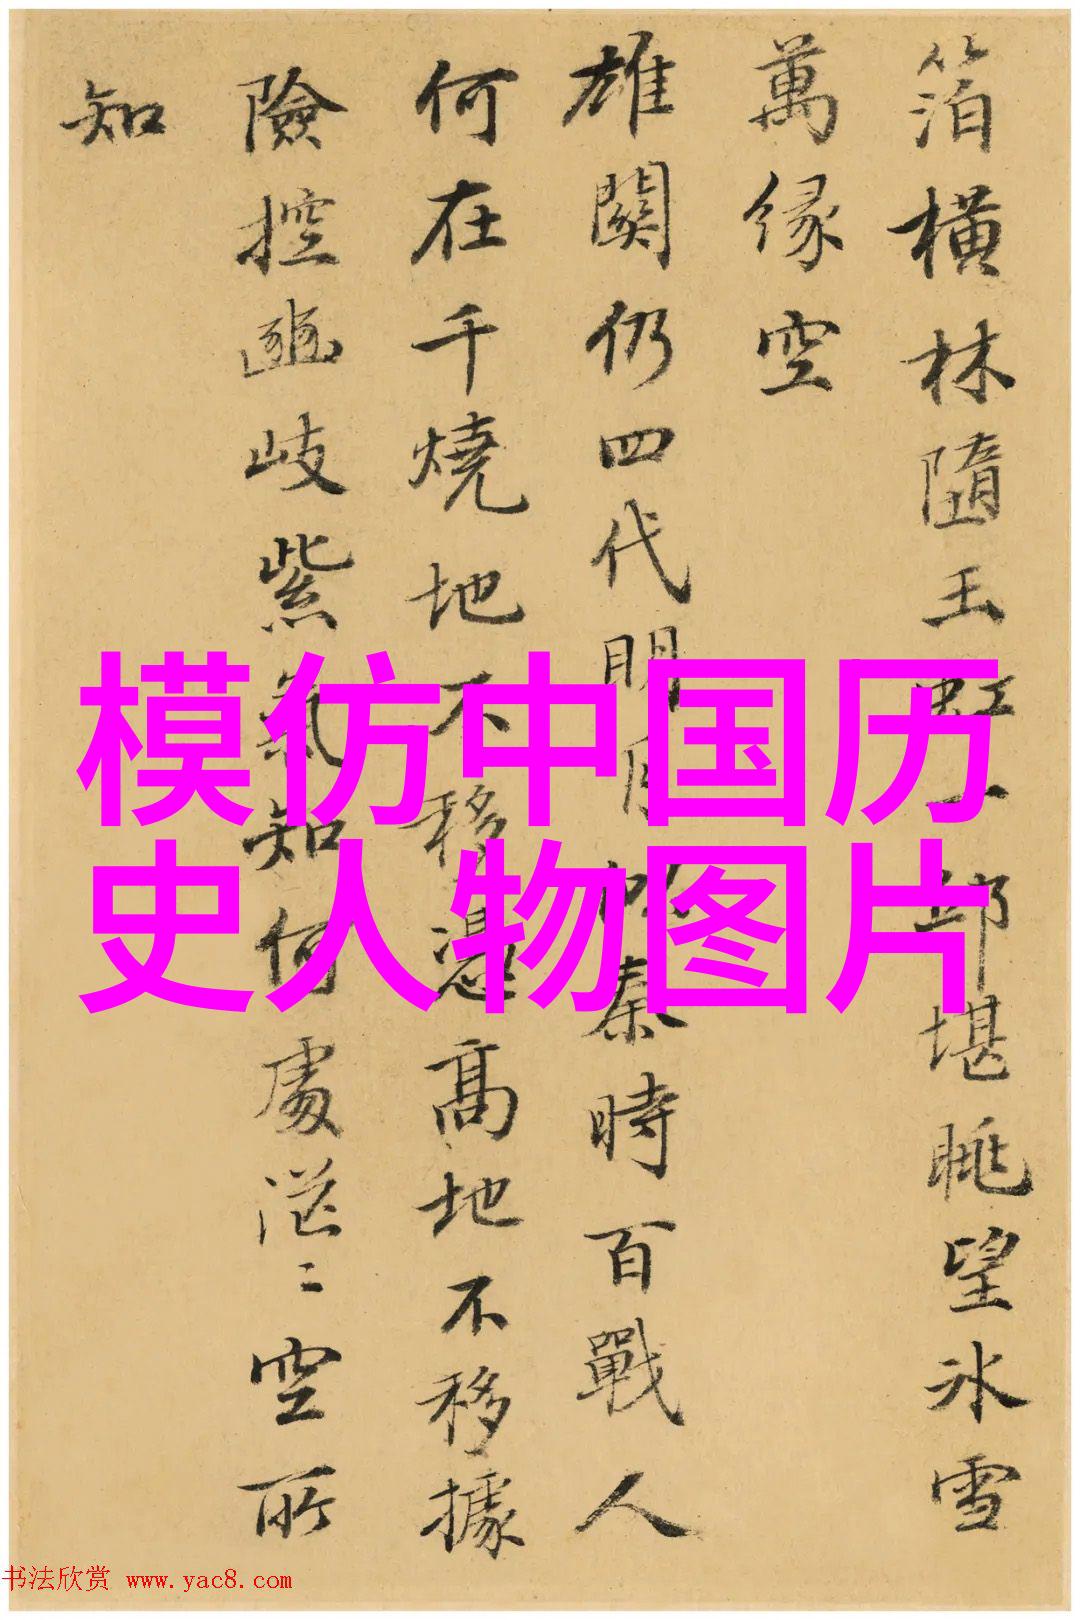 箔橫林隨玉虹一邨堪眺望氷雪
萬緣空
雄關仍四代明月秦時百戰人
何在千燒地不移憑高地不移據
險控豳岐紫氣知何處茫〻空所
知
模仿中国历
史人物图片
书法欣赏 www.yac8.com